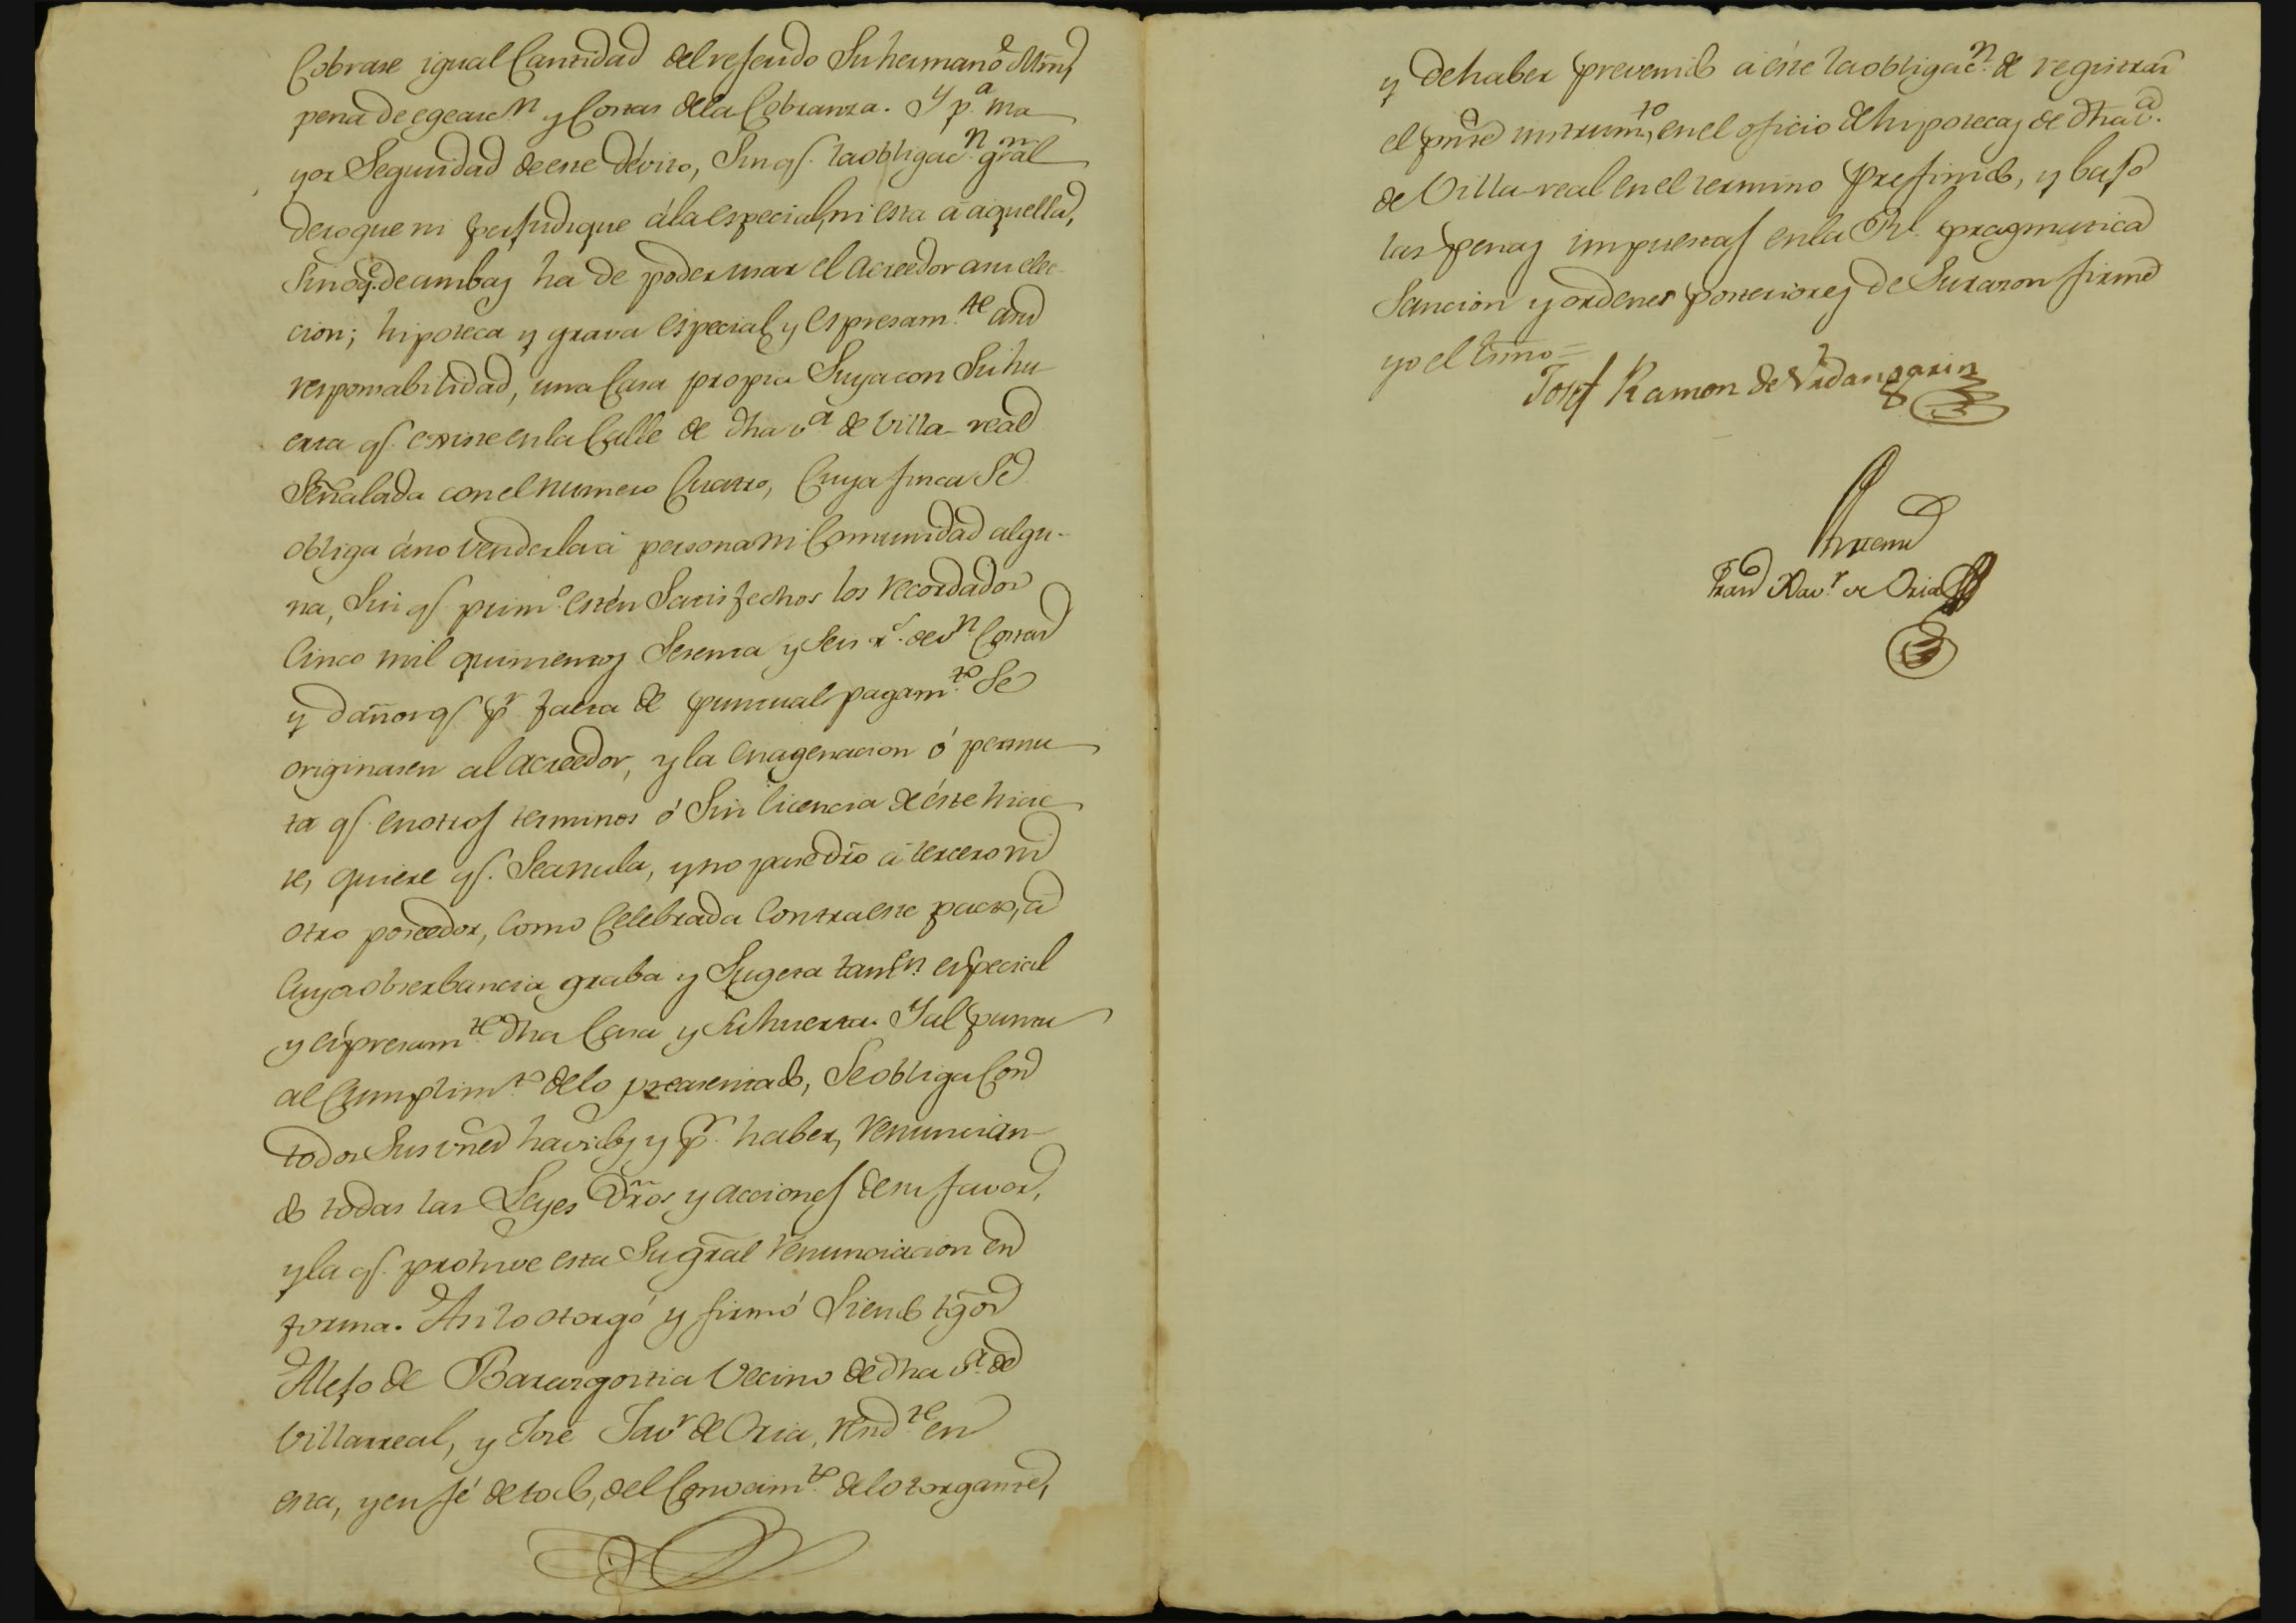 Cobrase igual Cantidad del referido Su hermano
pena de egecuc.n y Costas de la Cobranza. Y p.a ma
yor Seguridad de este dévito, Sin q.e la obligac.n gral
derogue ni perjudique á la especial, ni esta á aquella,
Sino q.e de ambas ha de poder usar el Acreedor a su elec-
cion; hipoteca y grava especial y espresam.te a su
responsabilidad, una Casa propia Suya con Su hu
erta q.e existe en la Calle de dha v.a de Villa-real
Señalada con el numero Cuatro, Cuya finca Se
obliga á no venderla á persona ni Comunidad algu-
na, Sin q.e prim.o estén Satisfechos los recordados
Cinco mil quinientos Setenta y Seis r.s de v.n Costas
y daños q.e p.r falta de puntual pagam.to Se
originasen al Acreedor, y la enagenacion ó permu
ta q.e en otros terminos ó Sin licencia de éste hicie
re, quiere q.e Sea nula, y no pase dro á tercero ni
otro poseedor, como Celebrada Contra este pacto, á
Cuya obserbancia graba y Sugeta tamb.n especial
y espresam.te dha Casa y Su huerta. Y al puntu
al Cumplim.to de lo precitado, Se obliga Con
todos Sus vnes havidos y p.r haber, renuncian-
do todas las Leyes Dros y acciones de su favor,
y la q.e prohive esta Su gral renunciacion en
forma. Asi lo otorgó y firmó Siendo tgos
Alejo de Barargoitia Vecino de dha v.a de
Villarreal, y José Jav.r de Oria, resid.te en
esta, y en fé de todo, del Conocim.to del otorgante,
y de haber prevenido á éste la obligac.n de registrar
el pnte instrum.to, en el oficio de hipotecas de dha v.a
de Villa-real en el termino prefinido, y bajo
las penas impuestas en la Rl. pragmatica
Sancion y ordenes posteriores de Su razon firmé
yo el Esno =
Josef Ramon de Vrdangarin
Antemi
Fran.co Xav.r de Oria